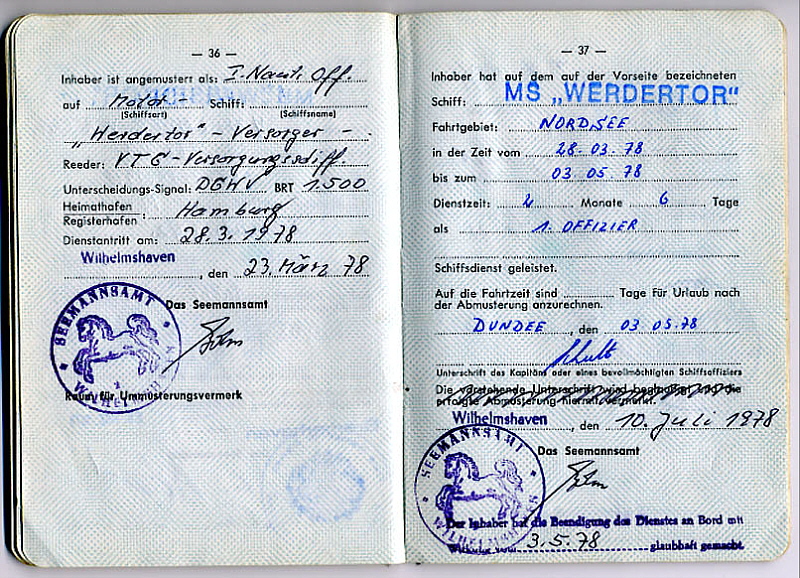 — 36 —
Inhaber ist angemustert als: I. Naut. Off.
auf Motor- Schiff:
(Schiffsart) (Schiffsname)
„Werdertor" - Versorger -
Reeder: VTG-Versorgungsschiff.
Unterscheidungs-Signal: DGWV BRT 1.500
Heimathafen
Registerhafen : Hamburg
Dienstantritt am: 28.3.1978
Wilhelmshaven, den 23. März 78
Das Seemannsamt
SEEMANNSAMT
WILHELMSHAVEN
Raum für Ummusterungsvermerk
— 37 —
Inhaber hat auf dem auf der Vorseite bezeichneten
Schiff: MS „WERDERTOR"
Fahrtgebiet: NORDSEE
in der Zeit vom 28.03.78
bis zum 03 05 78
Dienstzeit: Monate 6 Tage
als 1. OFFIZIER
Schiffsdienst geleistet.
Auf die Fahrtzeit sind Tage für Urlaub nach
der Abmusterung anzurechnen.
DUNDEE, den 03 05.78
Unterschrift des Kapitäns oder eines bevollmächtigten Schiffsoffiziers
Die vorstehende Unterschrift wird beglaubigt und die
erfolgte Abmusterung hiermit vermerkt.
Wilhelmshaven, den 10. Juli 1978
Das Seemannsamt
SEEMANNSAMT
WILHELMSHAVEN
Der Inhaber hat die Beendigung des Dienstes an Bord mit
Wirkung vom 3.5.78 glaubhaft gemacht.